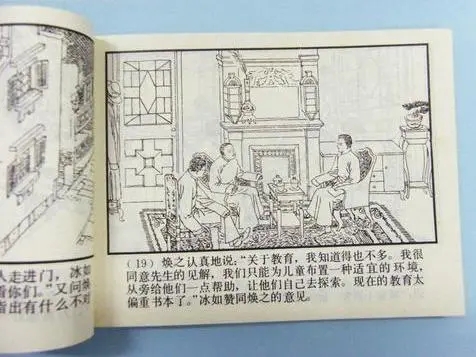 人走进门，冰如
看你们。”又问焕
指出有什么不对
（19） 焕之认真地说：“关于教育，我知道得也不多。我很
同意先生的见解，我们只能为儿童布置一种适宜的环境，
从旁给他们一点帮助，让他们自己去探索。现在的教育太
偏重书本了。”冰如赞同焕之的意见。